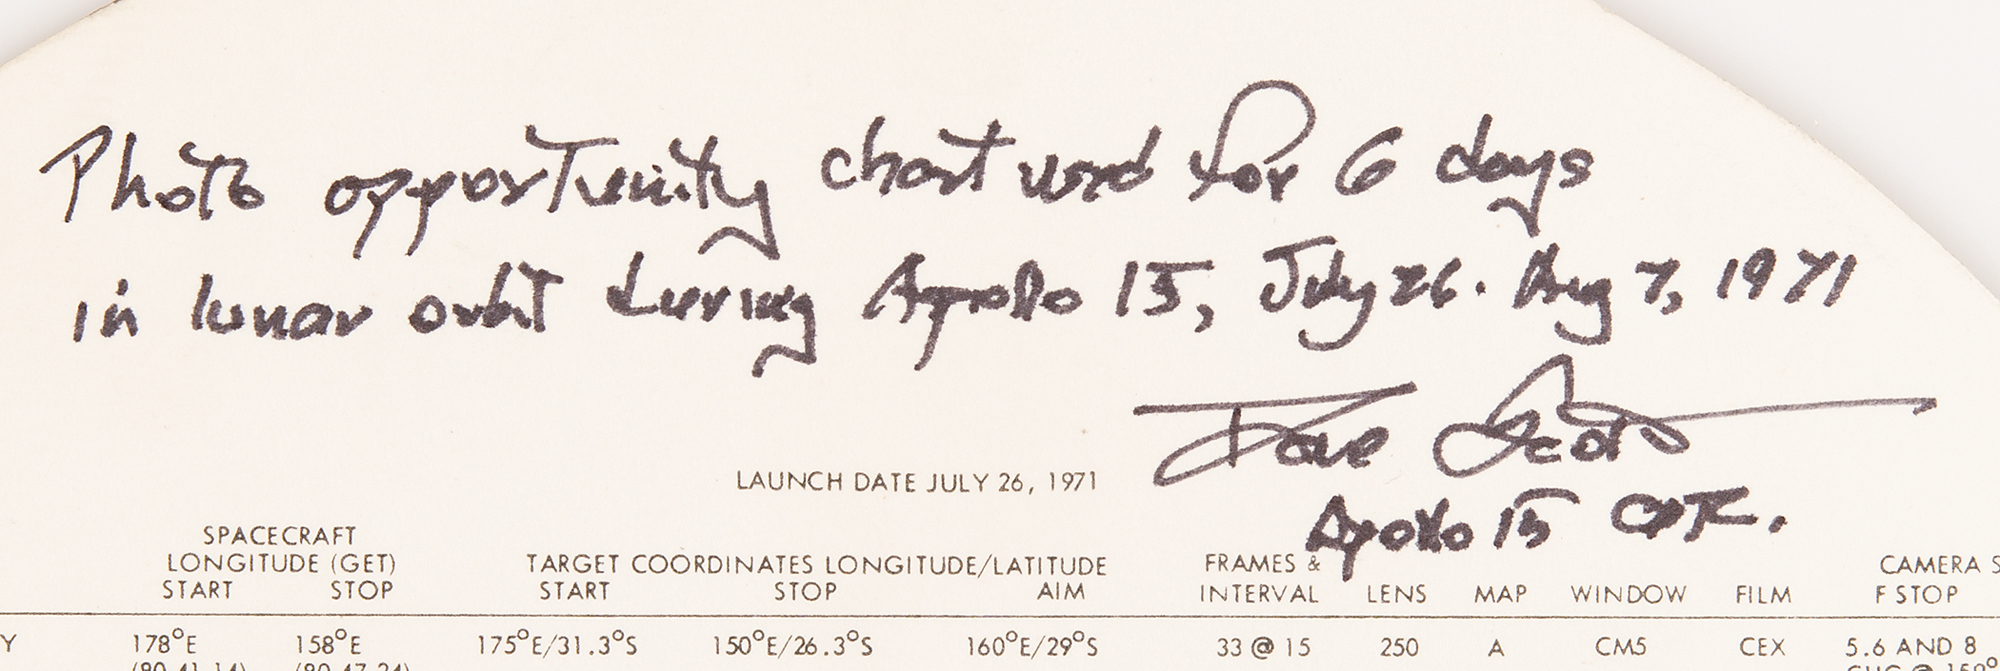 Photo opportunity chart used for 6 days
in lunar orbit during Apollo 15, July 26 - Aug 7, 1971
Dave Scott
Apollo 15 CDR.
LAUNCH DATE JULY 26, 1971
SPACECRAFT
LONGITUDE (GET)
START STOP
TARGET COORDINATES LONGITUDE/LATITUDE
START STOP AIM
FRAMES &
INTERVAL
LENS
MAP
WINDOW
FILM
CAMERA S
F STOP
Y 178°E 158°E 175°E/31.3°S 150°E/26.3°S 160°E/29°S 33 @ 15 250 A CM5 CEX 5.6 AND 8